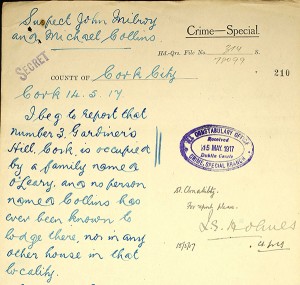 Suspect John Milroy
and Michael Collins
Crime—Special.
Hd.-Qrs. File No.
S.
SECRET
210
COUNTY OF Cork City
Cork 14.5.17
I beg to report that
number 3, Gardiner's
Hill, Cork is occupied
by a family named
O'Leary, and no person
named Collins has
ever been known to
lodge there, nor in any
other house in that
locality.
CONSTABULARY OFFICE
Received
15 MAY 1917
Dublin Castle
CRIME SPECIAL BRANCH
For report please.
15/5/17